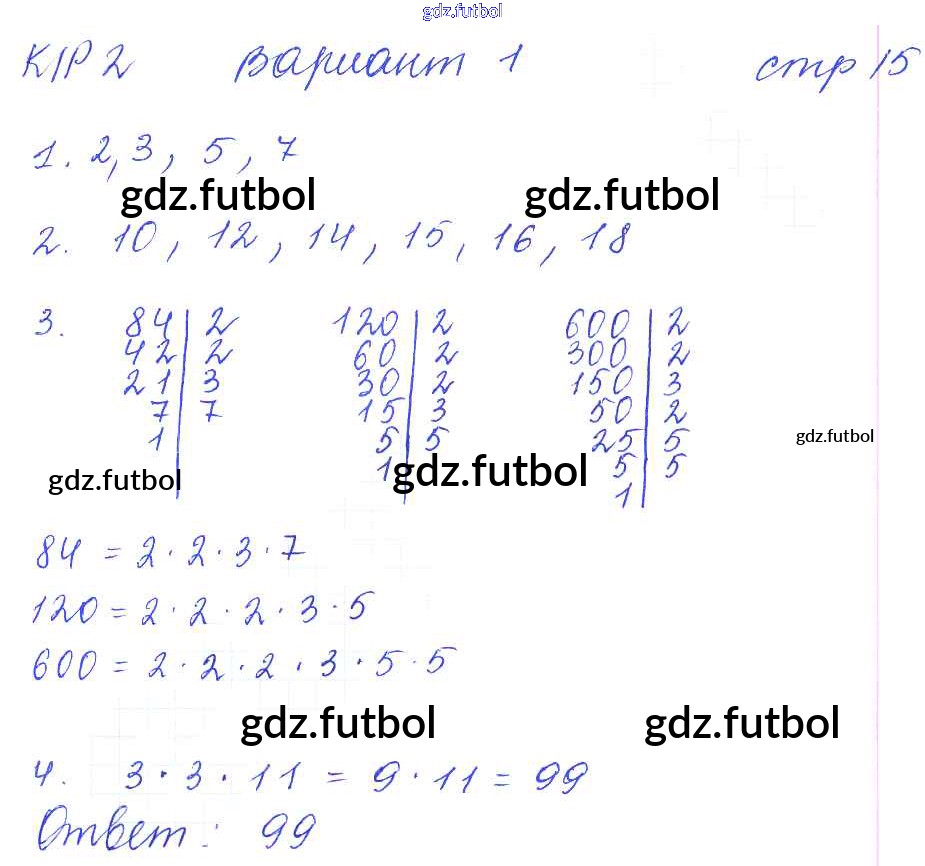 gdz.futbol
К/Р 2 Вариант 1 стр 15
1. 2, 3, 5, 7
gdz.futbol gdz.futbol
2. 10, 12, 14, 15, 16, 18
3. 84 | 2 120 | 2 600 | 2
42 | 2 60 | 2 300 | 2
21 | 3 30 | 2 150 | 3
7 | 7 15 | 3 50 | 2
gdz.futbol
1 | 5 | 5 25 | 5
1 | 5 | 5
gdz.futbol gdz.futbol
1 |
84 = 2 · 2 · 3 · 7
120 = 2 · 2 · 2 · 3 · 5
600 = 2 · 2 · 2 · 3 · 5 · 5
gdz.futbol gdz.futbol
4. 3 · 3 · 11 = 9 · 11 = 99
Ответ: 99